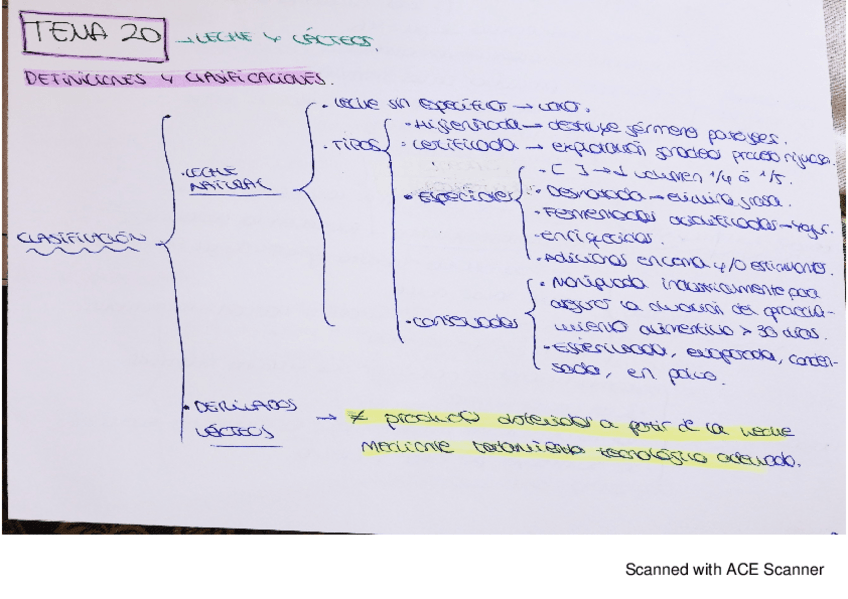 TEMA 20 → LECHE Y LÁCTEOS.
DEFINICIONES Y CLASIFICACIONES.
CLASIFICACIÓN
• LECHE NATURAL
• Leche sin especificar →
• TIPOS
• Higienizada → destruye gérmenes patógenos.
• Certificada → explotación ganadera
• ESPECIALES
• [ ] → ↓ volumen 1/4 ó 1/5.
• Desnatada → elimina grasa.
• Fermentadas acidificadas → yogur.
• enriquecidas.
• Adicionas en aroma y/o estimulante.
• CONSERVADAS
• Manipulada industrialmente para
asegurar la duración del
alimenticio > 30 días.
• Esterilizada, evaporada, conden-
sada, en polvo.
• DERIVADOS LÁCTEOS → ≠ producto obtenidos a partir de la leche
Mediante tratamiento tecnológico adecuado.
Scanned with ACE Scanner